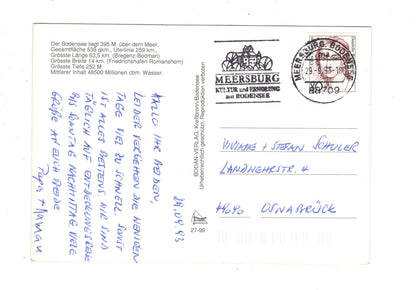 Der Bodensee liegt 395 M. über dem Meer.
Gesamtfläche 539 qkm., Uferlinie 259 km.,
Grösste Länge 63,5 km. (Bregenz-Bodman)
Grösste Breite 14 km. (Friedrichshafen-Romanshorn)
Grösste Tiefe 252 M.
Mittlerer Inhalt 48500 Millionen cbm. Wasser.
29.08.93
HALLO IHR BEIDEN,
LEIDER VERGEHEN DIE WENIGEN
TAGE VIEL ZU SCHNELL. SONST
IST ALLES BESTENS. WIR SIND
TÄGLICH AUF ENTDECKUNGSREISE
BIS SONNTAG NACHMITTAG VIELE
GRÜßE AN EUCH BEIDE
Papa + Mamau
BODAN-VERLAG, Kreßbronn/Bodensee
Urheberrechtlich geschützt, Reproduktion verboten
27-99
MEERSBURG
KULTUR und ERHOLUNG
am BODENSEE
MEERSBURG, BODENSEE
88709
VIVIANE + STEFAN SCHULER
LANDWEHRSTR. 4
49090 OSNABRÜCK